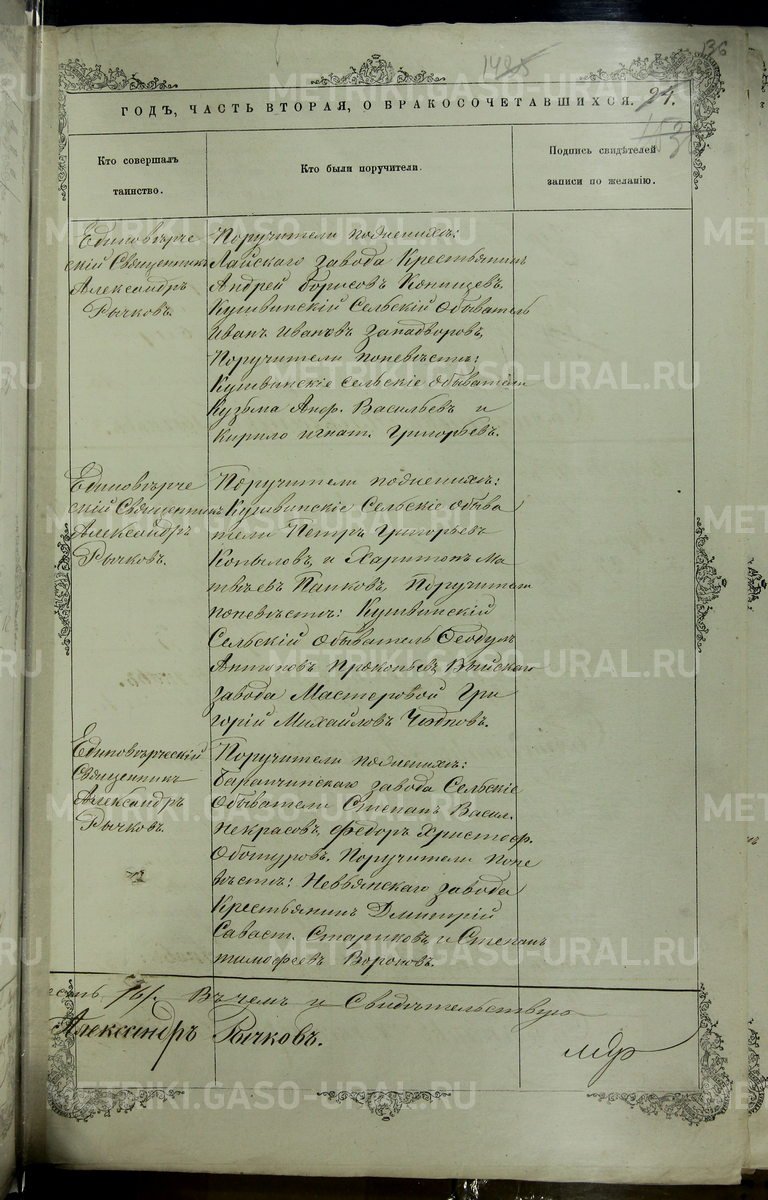 136
1425
ГОДЪ, ЧАСТЬ ВТОРАЯ, О БРАКОСОЧЕТАВШИХСЯ. 94.
153
Кто совершалъ
таинство.
Кто были поручители.
Подпись свидѣтелей
записи по желанію.
Единовѣрче
скій Священникъ
Александръ
Рычковъ.
Поручители поженихѣ:
Лайскаго завода Крестьянинъ
Андрей Борисовъ Конищевъ.
Кушвинскій Сельскій Обыватель
Иванъ Ивановъ Западворовъ,
Поручители поневѣстѣ:
Кушвинскіе сельскіе обыватели
Кузьма Анф. Васильевъ и
Кирило Игнат. Григорьевъ.
Единовѣрче
скій Священникъ
Александръ
Рычковъ.
Поручители поженихѣ:
Кушвинскіе Сельскіе обыва
тели Петръ Григорьевъ
Копыловъ, и Харитонъ Ма
твѣевъ Панковъ, Поручители
поневѣстѣ: Кушвинскій
Сельскій Обыватель Ѳедулъ
Антоновъ Прокопьевъ, Выйскаго
завода Мастеровой Гри
горій Михайловъ
Единовѣрческій
Священникъ
Александръ
Рычковъ.
Поручители поженихѣ:
Баранчинскаго завода Сельскіе
Обыватели Степанъ Васил.
Некрасовъ, Федоръ Христоф.
Обошуровъ. Поручители поне
вѣстѣ: Невьянскаго завода
Крестьянинъ Дмитрій
Саваст. Стариковъ и Степанъ
Тимофеевъ Вороновъ.
Въ чемъ и Свидѣтельствую
Александръ Рычковъ.
METRIKI.GASO-URAL.RU